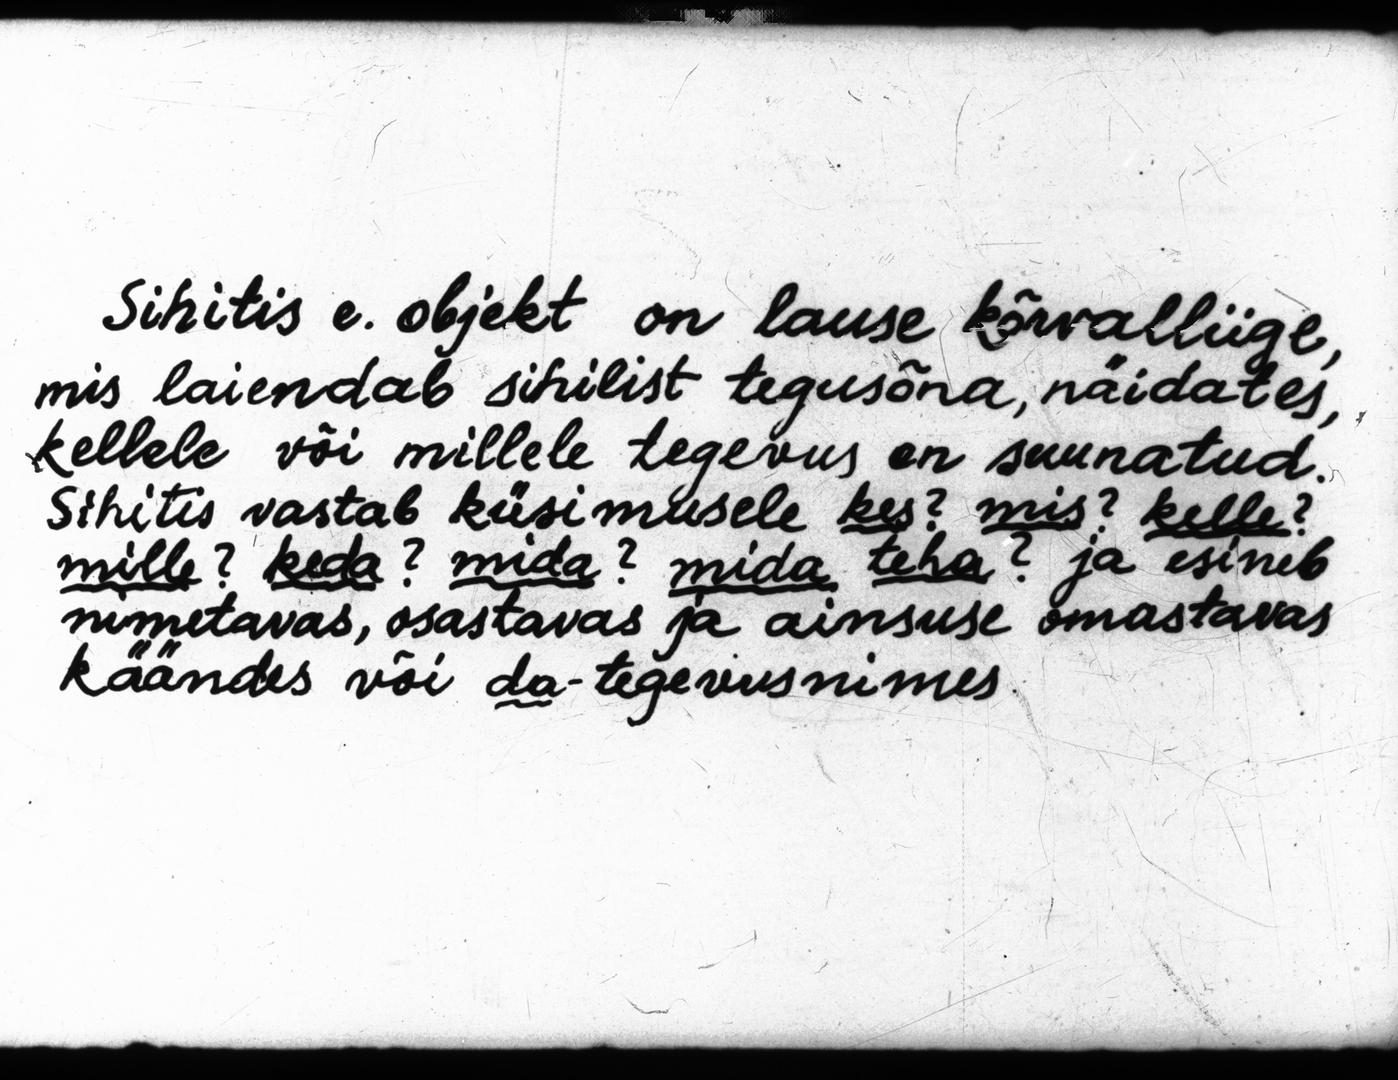 Sihitis e. objekt on lause kõrvalliige,
mis laiendab sihilist tegusõna, näidates,
kellele või millele tegevus on suunatud.
Sihitis vastab küsimusele kes? mis? kelle?
mille? keda? mida? mida teha? ja esineb
nimetavas, osastavas ja ainsuse omastavas
käändes või da-tegevusnimes.